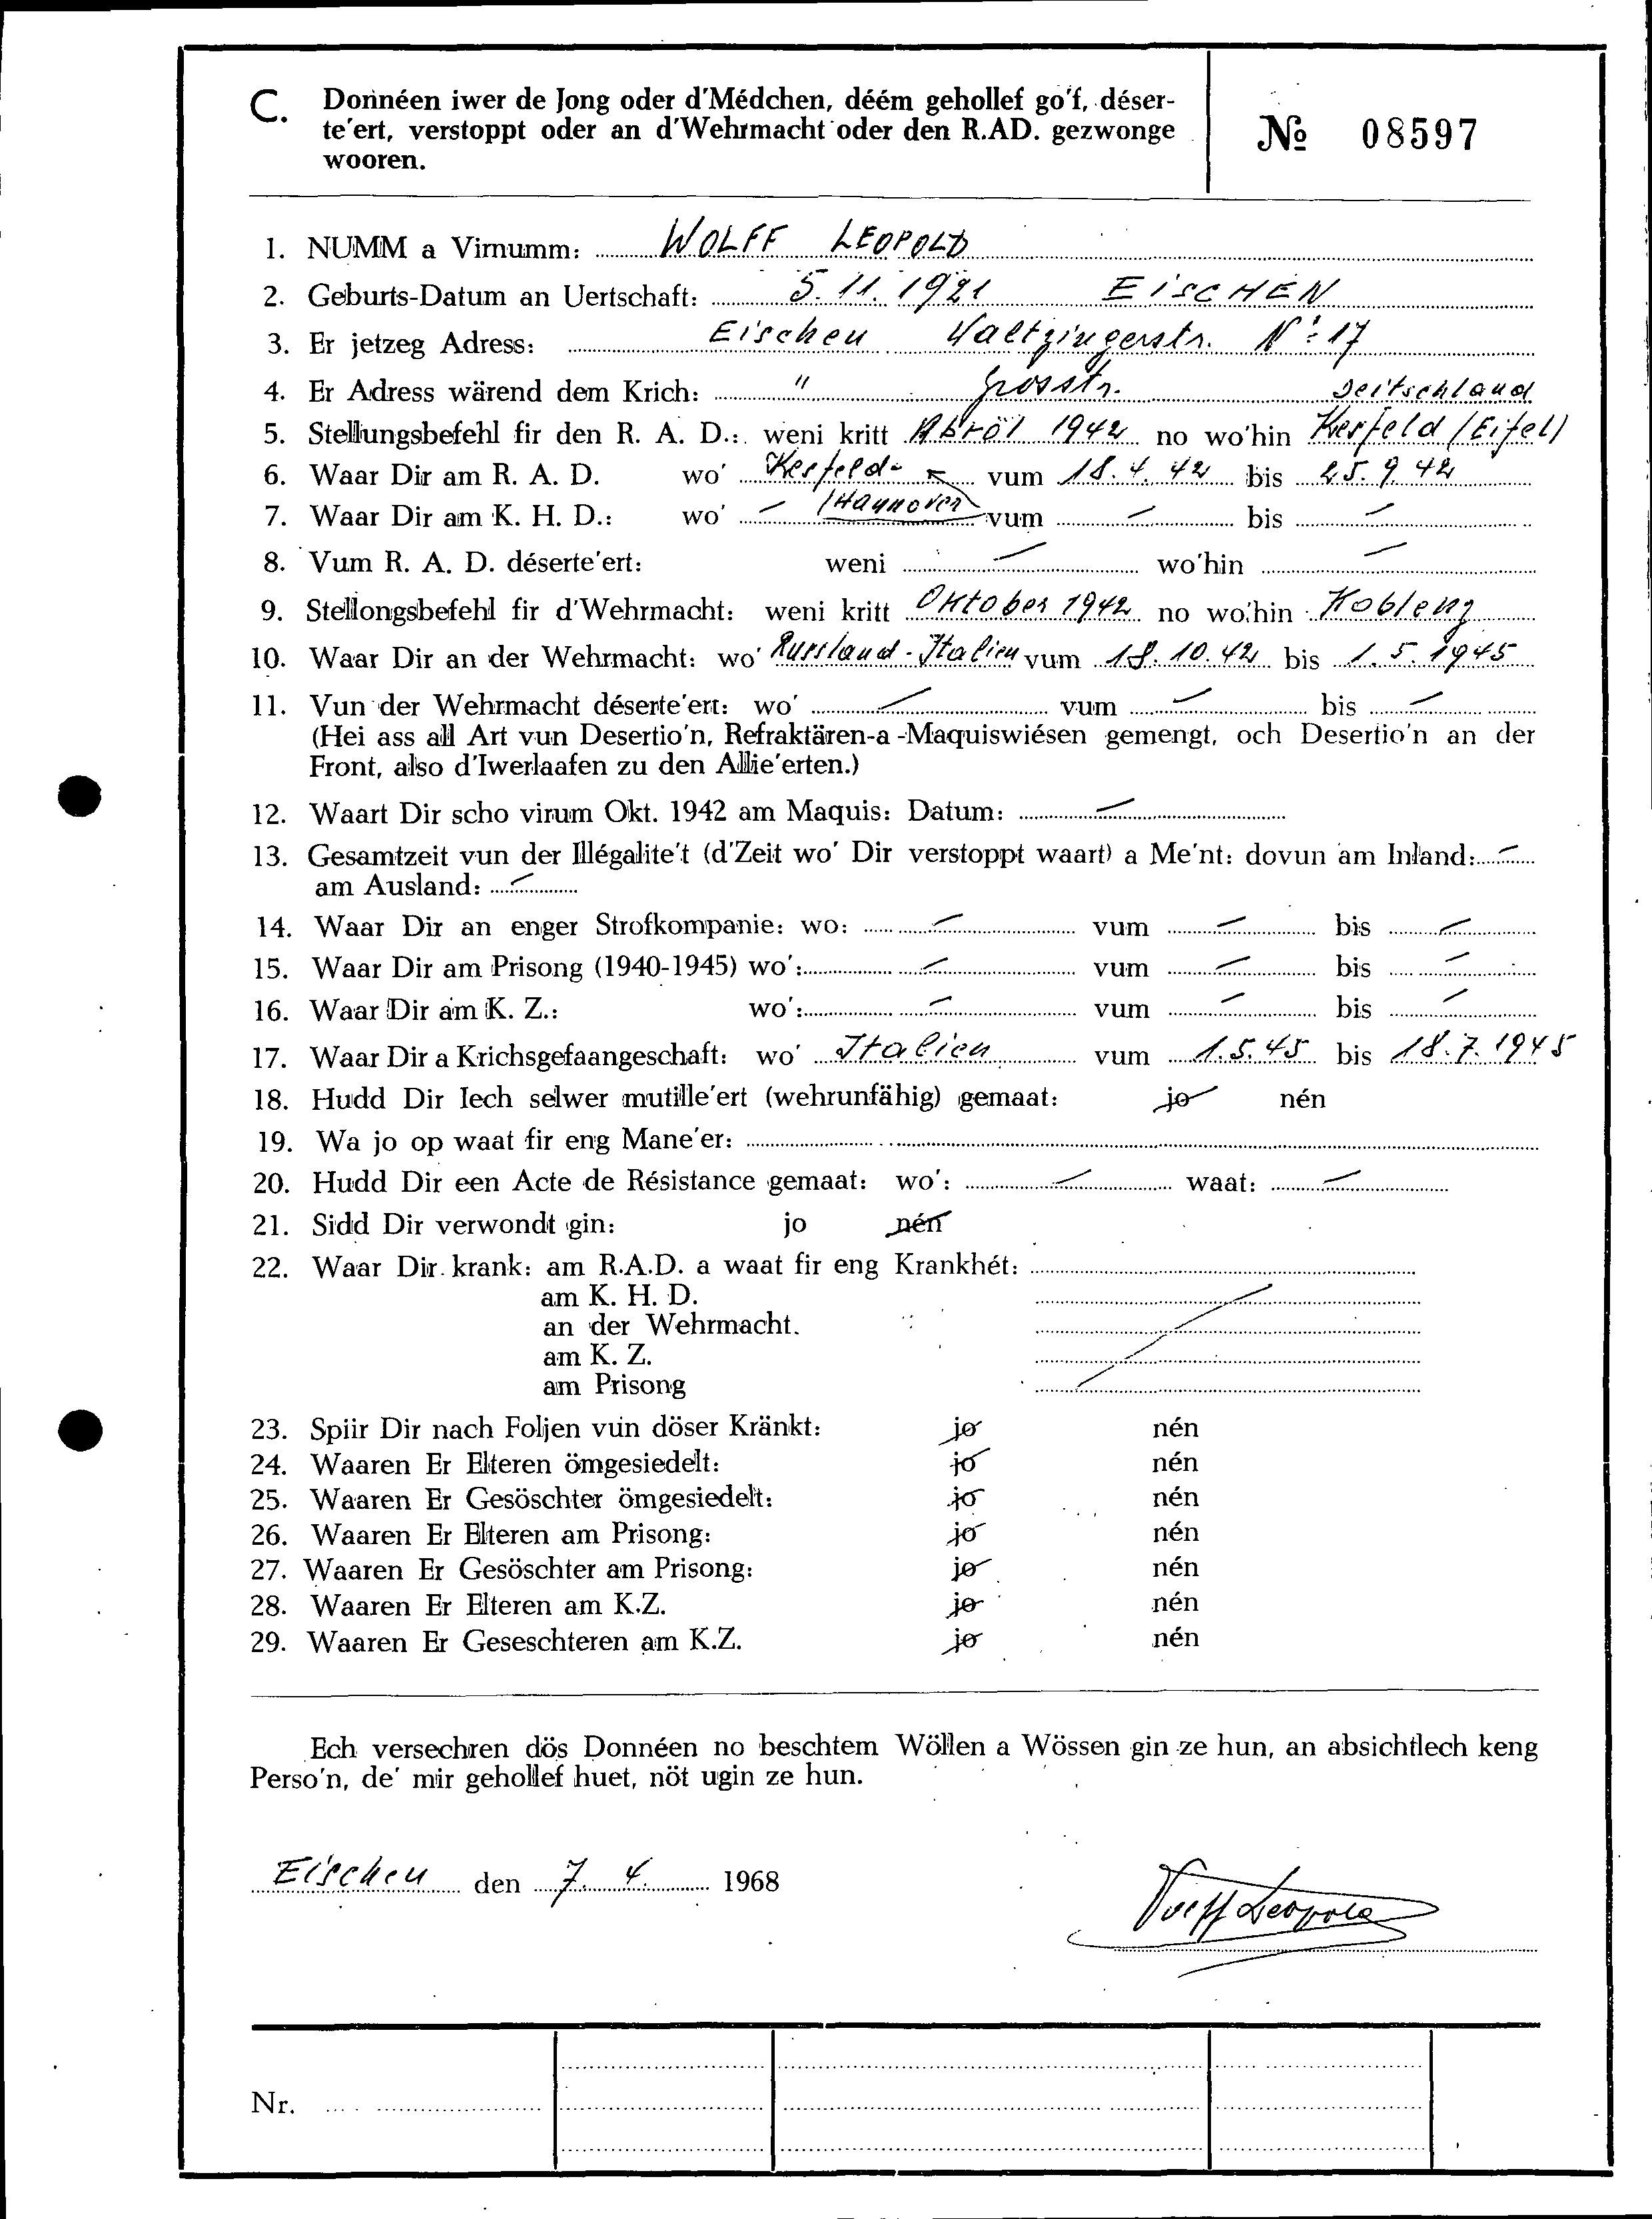 C. Donnéen iwer de Jong oder d'Médchen, déém gehollef go'f, déser-
te'ert, verstoppt oder an d'Wehrmacht oder den R.AD. gezwonge
wooren.
№ 08597
1. NUMM a Virnumm: WOLFF LEOPOLD
2. Geburts-Datum an Uertschaft: 5. 11. 1921 EISCHEN
3. Er jetzeg Adress: Eischen Waltzingerstr. N° 17
4. Er Adress wärend dem Krich: " Grosstr. Deitschland
5. Stellungsbefehl fir den R. A. D.: weni kritt Abröl 1942 no wo'hin Kesfeld (Eifel)
6. Waar Dir am R. A. D. wo' Kesfeld- vum 18. 4. 42 bis 25. 9. 42
7. Waar Dir am K. H. D.: wo' - (Hannover) vum - bis -
8. Vum R. A. D. déserte'ert: weni - wo'hin -
9. Stellongsbefehl fir d'Wehrmacht: weni kritt Oktober 1942 no wo'hin Koblenz
10. Waar Dir an der Wehrmacht: wo' Russland - Italien vum 18. 10. 42 bis 1. 5. 1945
11. Vun der Wehrmacht déserte'ert: wo' - vum - bis -
(Hei ass all Art vun Desertio'n, Refraktären-a -Maquiswiésen gemengt, och Desertio'n an der
Front, also d'Iwerlaafen zu den Allie'erten.)
12. Waart Dir scho virum Okt. 1942 am Maquis: Datum: -
13. Gesamtzeit vun der Illégalite't (d'Zeit wo' Dir verstoppt waart) a Me'nt: dovun am Inland: -
am Ausland: -
14. Waar Dir an enger Strofkompanie: wo: - vum - bis -
15. Waar Dir am Prisong (1940-1945) wo': - vum - bis -
16. Waar Dir am K. Z.: wo': - vum - bis -
17. Waar Dir a Krichsgefaangeschaft: wo' Italien vum 1. 5. 45 bis 18. 7. 1945
18. Hudd Dir Iech selwer mutille'ert (wehrunfähig) gemaat: jo nén
19. Wa jo op waat fir eng Mane'er:
20. Hudd Dir een Acte de Résistance gemaat: wo': - waat: -
21. Sidd Dir verwondt gin: jo nén
22. Waar Dir krank: am R.A.D. a waat fir eng Krankhét:
am K. H. D.
an der Wehrmacht.
am K. Z.
am Prisong
23. Spiir Dir nach Foljen vun döser Kränkt: jo nén
24. Waaren Er Elteren ömgesiedelt: jo nén
25. Waaren Er Gesöschter ömgesiedelt: jo nén
26. Waaren Er Elteren am Prisong: jo nén
27. Waaren Er Gesöschter am Prisong: jo nén
28. Waaren Er Elteren am K.Z. jo nén
29. Waaren Er Geseschteren am K.Z. jo nén
Ech versechren dös Donnéen no beschtem Wöllen a Wössen gin ze hun, an absichtlech keng
Perso'n, de' mir gehollef huet, nöt ugin ze hun.
Eischen den 7. 4. 1968
Wolff Leopold
Nr.